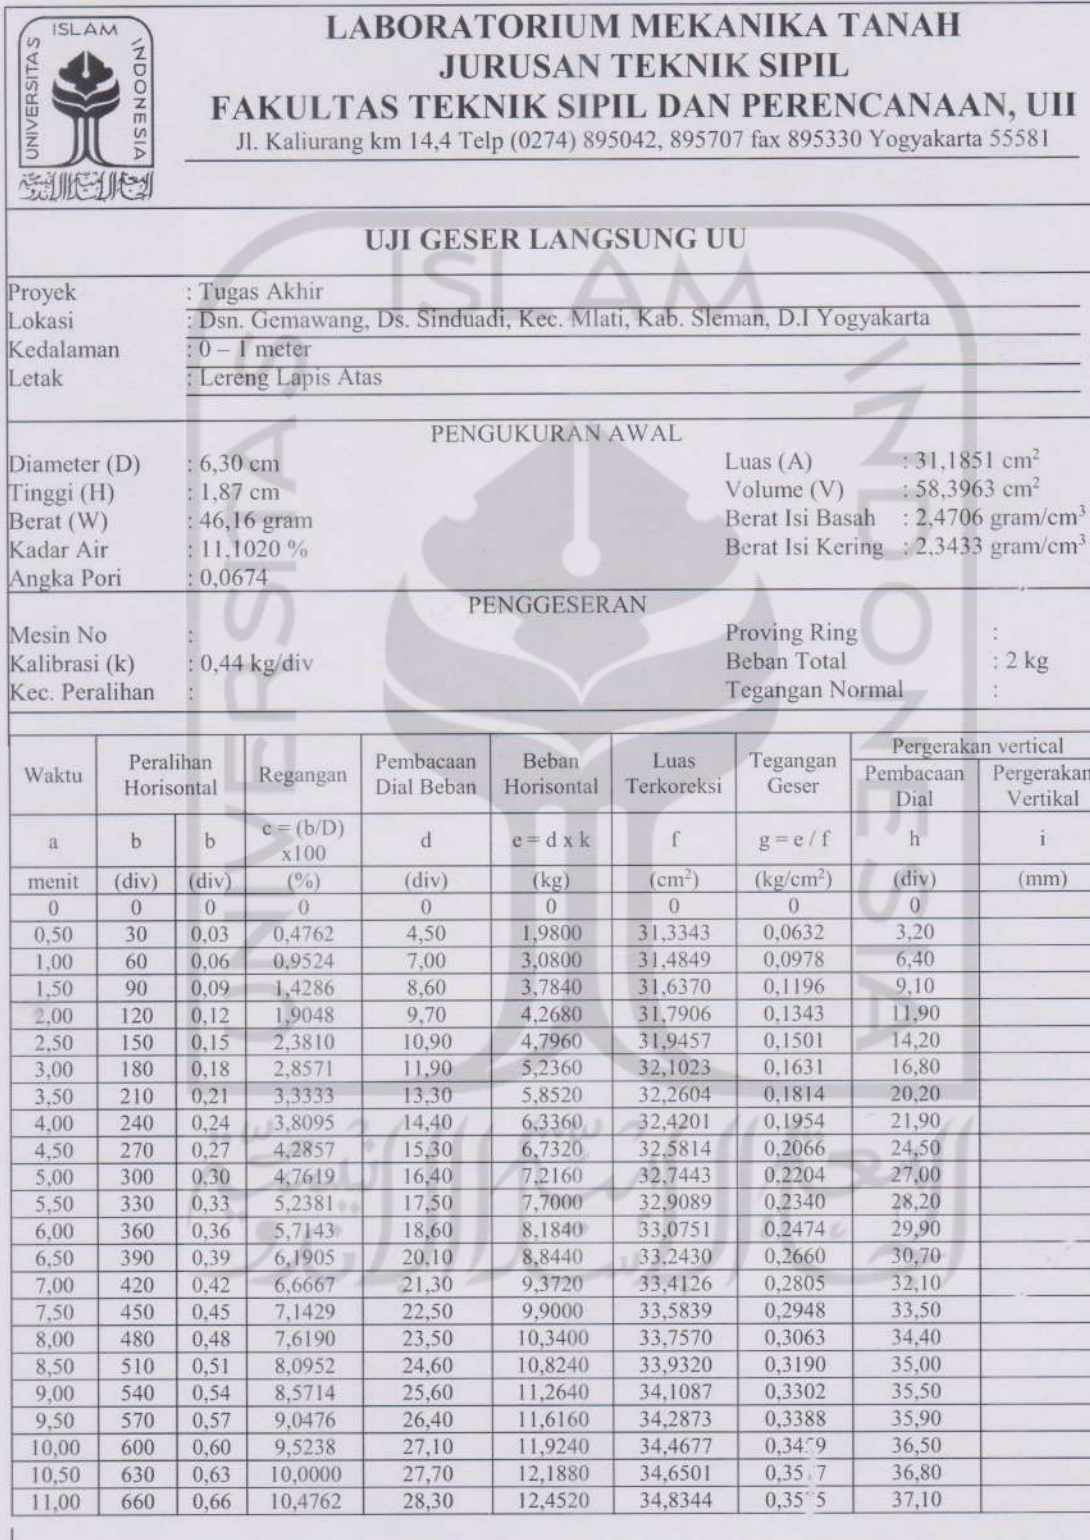 UNIVERSITAS ISLAM INDONESIA
LABORATORIUM MEKANIKA TANAH
JURUSAN TEKNIK SIPIL
FAKULTAS TEKNIK SIPIL DAN PERENCANAAN, UII
Jl. Kaliurang km 14,4 Telp (0274) 895042, 895707 fax 895330 Yogyakarta 55581
UJI GESER LANGSUNG UU
Proyek : Tugas Akhir
Lokasi : Dsn. Gemawang, Ds. Sinduadi, Kec. Mlati, Kab. Sleman, D.I Yogyakarta
Kedalaman : 0 – 1 meter
Letak : Lereng Lapis Atas
PENGUKURAN AWAL
Diameter (D) : 6,30 cm Luas (A) : 31,1851 cm²
Tinggi (H) : 1,87 cm Volume (V) : 58,3963 cm²
Berat (W) : 46,16 gram Berat Isi Basah : 2,4706 gram/cm³
Kadar Air : 11,1020 % Berat Isi Kering : 2,3433 gram/cm³
Angka Pori : 0,0674
PENGGESERAN
Mesin No : Proving Ring :
Kalibrasi (k) : 0,44 kg/div Beban Total : 2 kg
Kec. Peralihan : Tegangan Normal :
Waktu Peralihan Horisontal Regangan Pembacaan Dial Beban Beban Horisontal Luas Terkoreksi Tegangan Geser Pergerakan vertical
Pembacaan Dial Pergerakan Vertikal
a b b c = (b/D) x100 d e = d x k f g = e / f h i
menit (div) (div) (%) (div) (kg) (cm²) (kg/cm²) (div) (mm)
0 0 0 0 0 0 0 0 0
0,50 30 0,03 0,4762 4,50 1,9800 31,3343 0,0632 3,20
1,00 60 0,06 0,9524 7,00 3,0800 31,4849 0,0978 6,40
1,50 90 0,09 1,4286 8,60 3,7840 31,6370 0,1196 9,10
2,00 120 0,12 1,9048 9,70 4,2680 31,7906 0,1343 11,90
2,50 150 0,15 2,3810 10,90 4,7960 31,9457 0,1501 14,20
3,00 180 0,18 2,8571 11,90 5,2360 32,1023 0,1631 16,80
3,50 210 0,21 3,3333 13,30 5,8520 32,2604 0,1814 20,20
4,00 240 0,24 3,8095 14,40 6,3360 32,4201 0,1954 21,90
4,50 270 0,27 4,2857 15,30 6,7320 32,5814 0,2066 24,50
5,00 300 0,30 4,7619 16,40 7,2160 32,7443 0,2204 27,00
5,50 330 0,33 5,2381 17,50 7,7000 32,9089 0,2340 28,20
6,00 360 0,36 5,7143 18,60 8,1840 33,0751 0,2474 29,90
6,50 390 0,39 6,1905 20,10 8,8440 33,2430 0,2660 30,70
7,00 420 0,42 6,6667 21,30 9,3720 33,4126 0,2805 32,10
7,50 450 0,45 7,1429 22,50 9,9000 33,5839 0,2948 33,50
8,00 480 0,48 7,6190 23,50 10,3400 33,7570 0,3063 34,40
8,50 510 0,51 8,0952 24,60 10,8240 33,9320 0,3190 35,00
9,00 540 0,54 8,5714 25,60 11,2640 34,1087 0,3302 35,50
9,50 570 0,57 9,0476 26,40 11,6160 34,2873 0,3388 35,90
10,00 600 0,60 9,5238 27,10 11,9240 34,4677 36,50
10,50 630 0,63 10,0000 27,70 12,1880 34,6501 36,80
11,00 660 0,66 10,4762 28,30 12,4520 34,8344 37,10